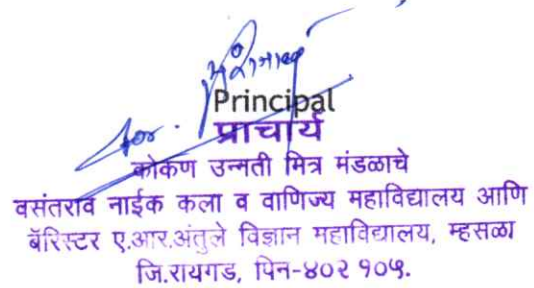 for.
Principal
प्राचार्य
कोकण उन्नती मित्र मंडळाचे
वसंतराव नाईक कला व वाणिज्य महाविद्यालय आणि
बॅरिस्टर ए.आर.अंतुले विज्ञान महाविद्यालय, म्हसळा
जि.रायगड, पिन-४०२ १०५.